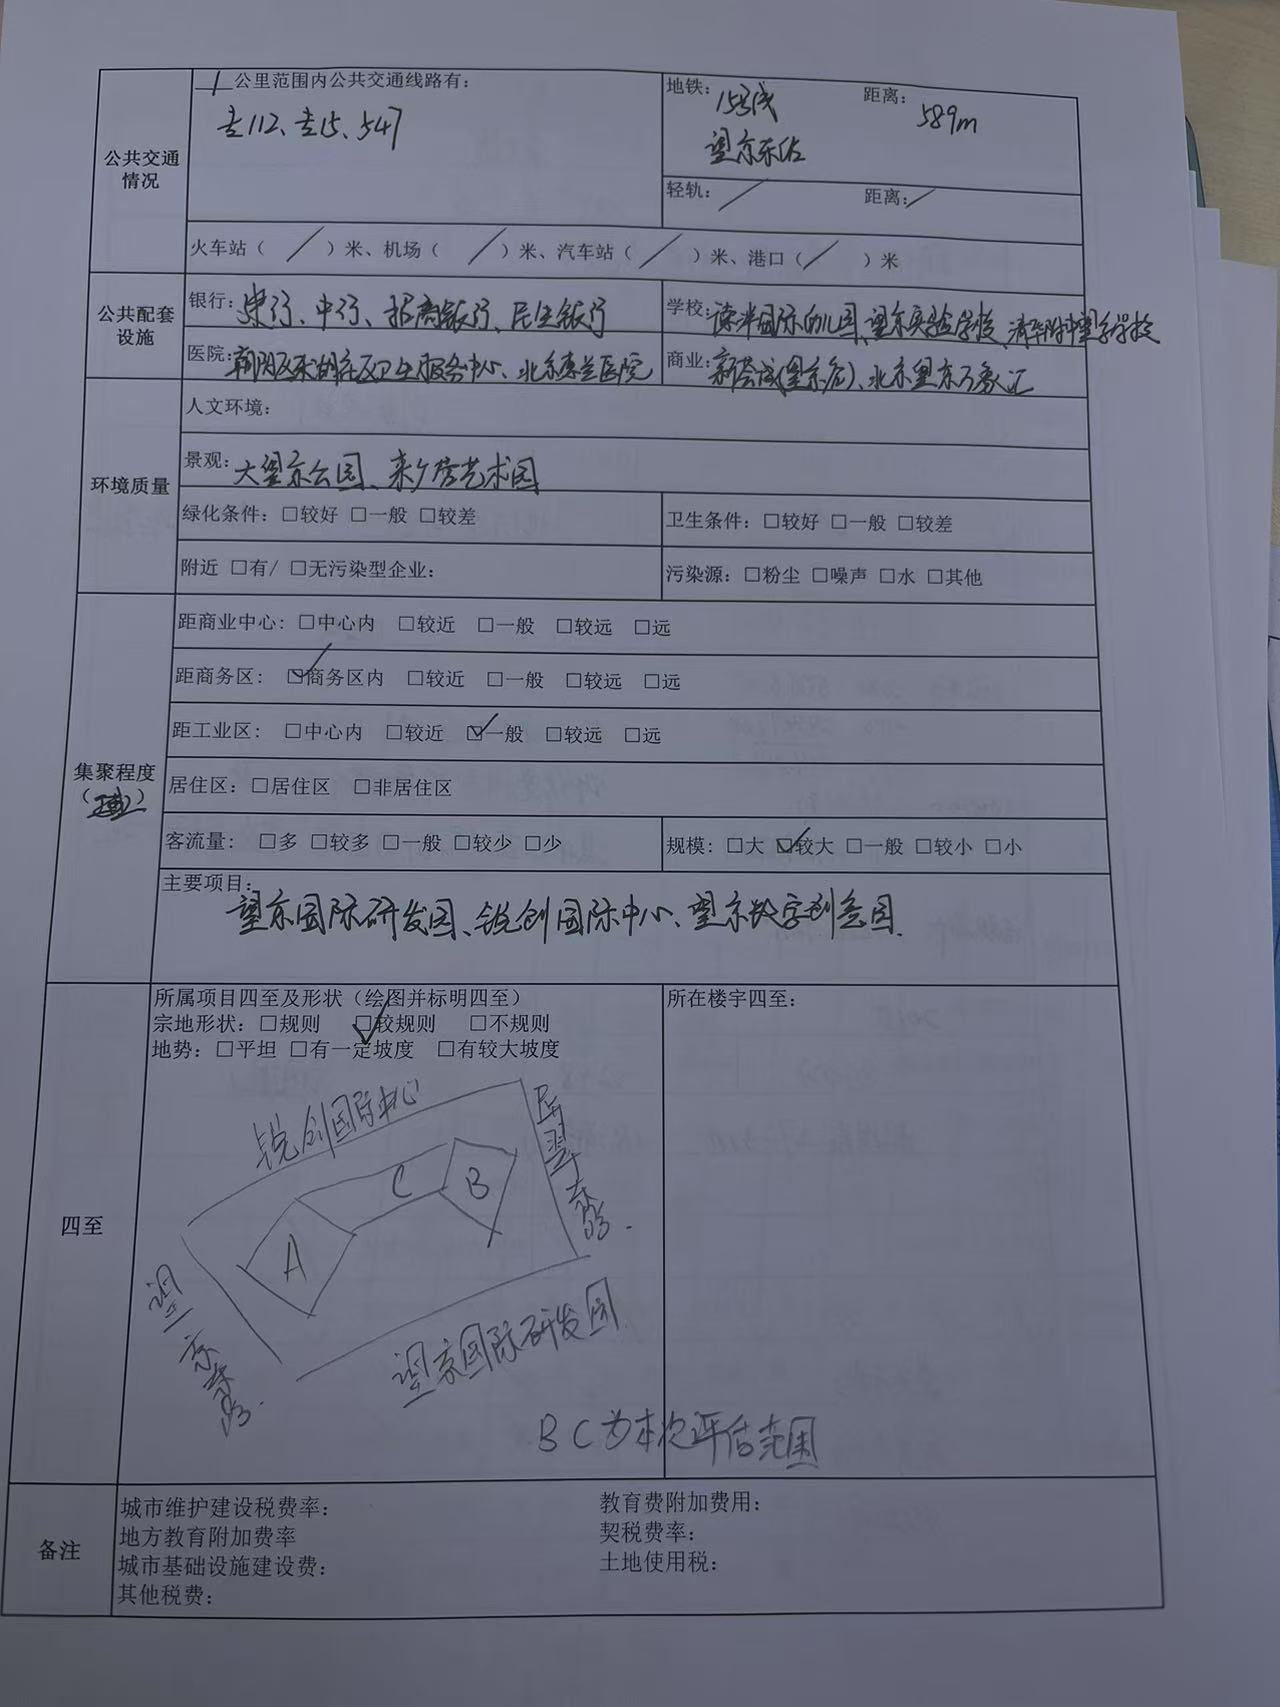 1公里范围内公共交通线路有:
专112、专15、547
地铁: 15号线 距离: 589m
望京东站
公共交通情况
轻轨: / 距离: /
火车站（ / ）米、机场（ / ）米、汽车站（ / ）米、港口（ / ）米
公共配套设施
银行: 建行、中行、招商银行、民生银行
学校: 国际幼儿园、望京实验学校、清华附中望京学校
医院: 朝阳区东湖社区卫生服务中心、北京 医院
商业: 新荟城(望京店)、北京望京万象汇
环境质量
人文环境:
景观: 大望京公园、来广营艺术园
绿化条件: □较好 □一般 □较差
卫生条件: □较好 □一般 □较差
附近 □有/ □无污染型企业:
污染源: □粉尘 □噪声 □水 □其他
集聚程度
距商业中心: □中心内 □较近 □一般 □较远 □远
距商务区: ☑商务区内 □较近 □一般 □较远 □远
距工业区: □中心内 □较近 ☑一般 □较远 □远
居住区: □居住区 □非居住区
客流量: □多 □较多 □一般 □较少 □少
规模: □大 ☑较大 □一般 □较小 □小
主要项目:
望京国际研发园、锐创国际中心、望京数字创意园.
四至
所属项目四至及形状（绘图并标明四至）
宗地形状: □规则 ☑较规则 □不规则
地势: □平坦 □有一定坡度 □有较大坡度
所在楼宇四至:
锐创国际中心
C
B
A
翠东路.
望京东路.
望京国际研发园
B C为本次评估范围
备注
城市维护建设税费率:
教育费附加费用:
地方教育附加费率
契税费率:
城市基础设施建设费:
土地使用税:
其他税费: